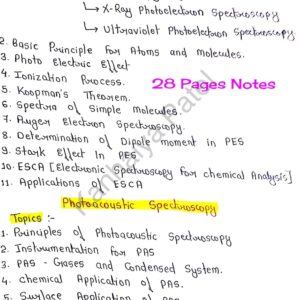 ↳ X-Ray Photoelectron Spectroscopy
↳ Ultraviolet Photoelectron Spectroscopy
2. Basic Principle for Atoms and molecules.
3. Photo Electric Effect
4. Ionization Process.
28 Pages Notes
5. Koopman's Theorem.
6. Spectra of Simple molecules.
7. Auger Electron Spectroscopy.
8. Determination of Dipole moment in PES
9. Stark Effect In PES
10. ESCA [Electronic Spectroscopy for chemical Analysis]
11. Applications of ESCA
Photoacoustic Spectroscopy
Topics :-
1. Principles of Photoacoustic Spectroscopy
2. Instrumentation for PAS
3. PAS - Gases and Condensed System.
4. chemical Application of PAS.
5. Surface Application of PAS